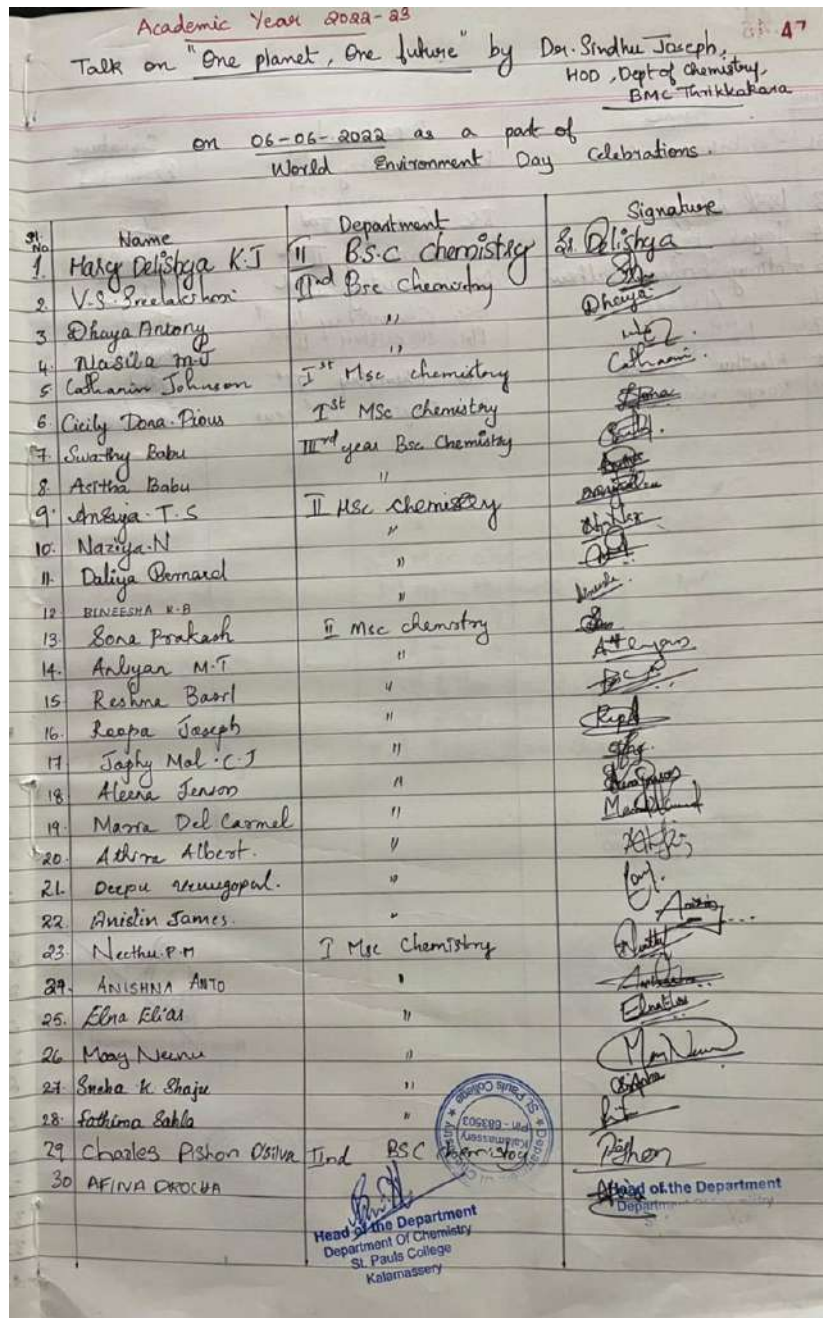 Academic Year 2022-23
47
Talk on "One planet, One future" by Dr. Sindhu Joseph,
HOD, Dept of Chemistry,
BMC Thrikkakara
on 06-06-2022 as a part of
World Environment Day Celebrations.
Sl. No Name Department Signature
1. Mary Delishya K.J II B.S.C chemistry Sr. Delishya
2. V.S. Sreelakshmi IInd Bsc Chemistry
3 Dhaya Antony " Dhaya
4. Nasila M.J "
5 Catharin Johnson Ist Msc chemistry
6 Cicily Dona Pious Ist MSc Chemistry Dona
7. Swathy Babu IIIrd year Bsc Chemistry
8. Asitha Babu "
9. Ansiya. T. S II MSc chemistry
10. Naziya. N "
11. Daliya Bernard "
12 BINEESHA K.B "
13. Sona Prakash II Msc chemistry
14. Anliyan M.T "
15 Reshma Basil "
16. Roopa Joseph "
17 Japhy Mol. C.J "
18 Aleena Jenson "
19. Maria Del Carmel "
20. Athira Albert. "
21. Deepu Venugopal. "
22. Anislin James. "
23. Neethu. P.M I Msc Chemistry
24. ANISHNA ANTO "
25. Elna Elias "
26 Mary Neenu " Mary Neenu
27. Sneha K Shaju "
28. Fathima Sahla "
29 Charles Pishon D'silva IInd BSC chemistry Pishon
30 AFINA DROCHA
St. Pauls College
Kalamassery
Pin - 683503
Head of the Department
Department Of Chemistry
St. Pauls College
Kalamassery
Head of the Department